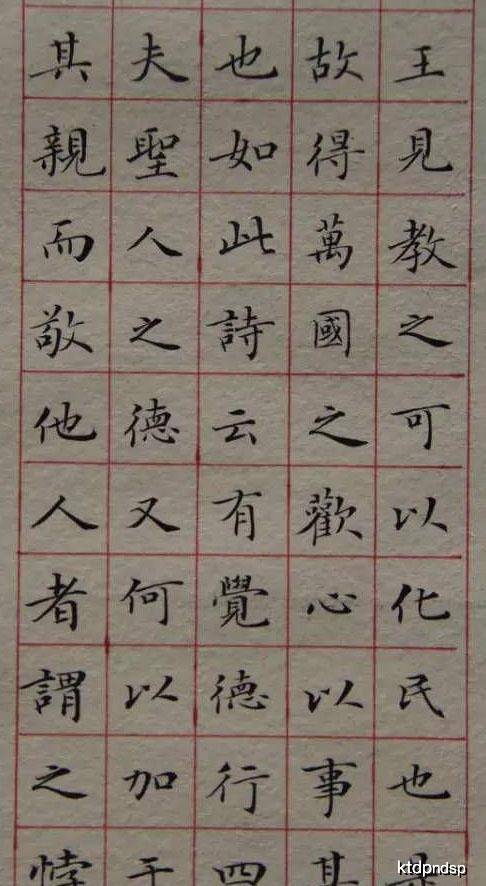 王見教之可以化民也
故得萬國之歡心以事其
也如此詩云有覺德行四
夫聖人之德又何以加
其親而敬他人者謂之悖
ktdpndsp